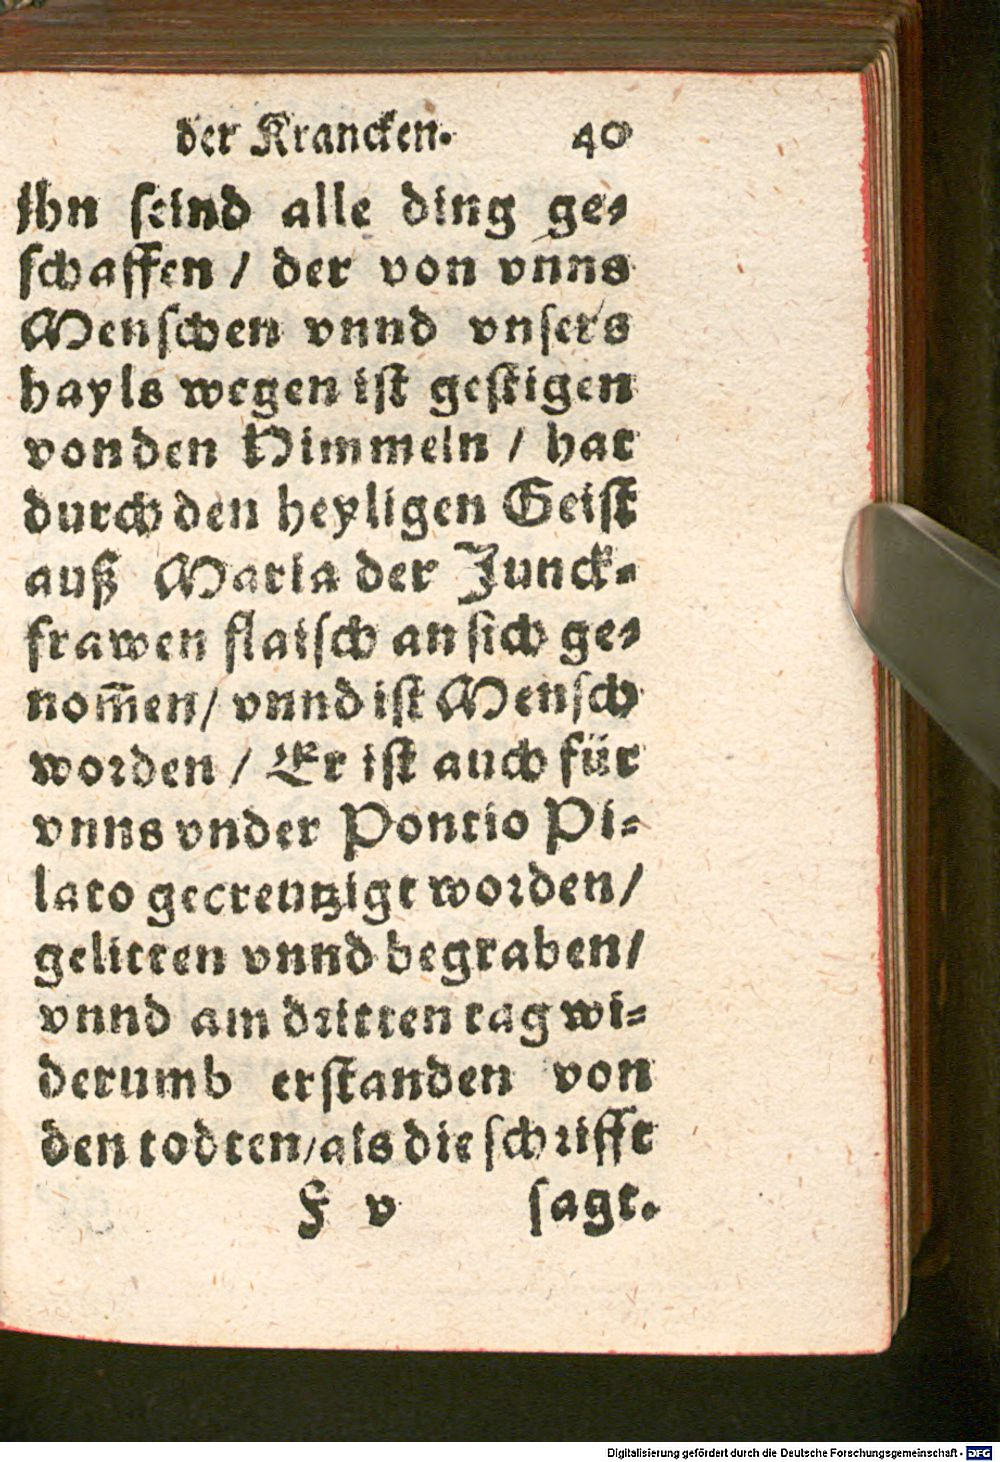 der Krancken. 40
Ihn seind alle ding ge-
schaffen / der von vnns
Menschen vnnd vnsers
hayls wegen ist gestigen
von den Himmeln / hat
durch den heyligen Geist
auß Maria der Junck-
frawen flaisch an sich ge-
nom̃en / vnnd ist Mensch
worden / Er ist auch für
vnns vnder Pontio Pi-
lato gecreutzigt worden /
gelitten vnnd begraben /
vnnd am dritten tag wi-
derumb erstanden von
den todten / als die schrifft
F v sagt.
Digitalisierung gefördert durch die Deutsche Forschungsgemeinschaft - DFG